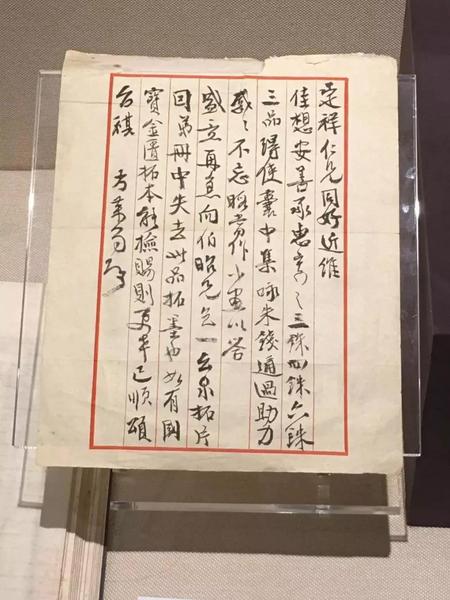 祥仁兄同好近維
佳想安善承惠三銖四銖六銖
三品得使囊中集泉錢通過助力
感之不忘暇當作小畫以答
盛意再向伯昭兄乞一泉拓片
因弟冊中失去此品拓墨也如有國
寶金匱拓本能檢賜則更幸已順頌
台祺